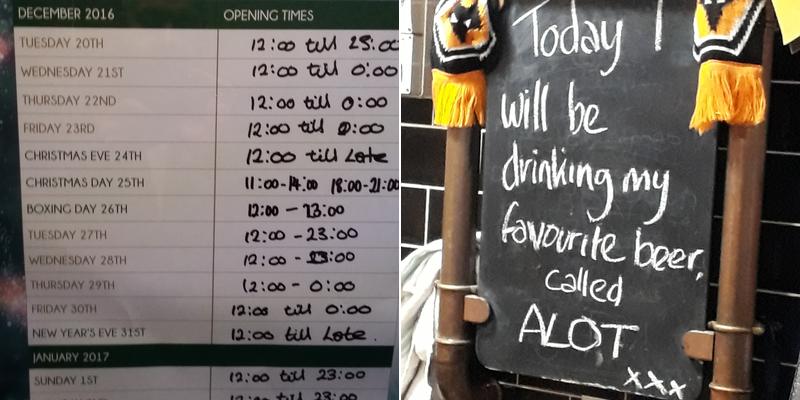 DECEMBER 2016 OPENING TIMES
TUESDAY 20TH 12:00 till 23:00
WEDNESDAY 21ST 12:00 till 0:00
THURSDAY 22ND 12:00 till 0:00
FRIDAY 23RD 12:00 till 0:00
CHRISTMAS EVE 24TH 12:00 till Late
CHRISTMAS DAY 25TH 11:00-14:00 18:00-21:00
BOXING DAY 26TH 12:00 - 23:00
TUESDAY 27TH 12:00 - 23:00
WEDNESDAY 28TH 12:00 - 23:00
THURSDAY 29TH 12:00 - 0:00
FRIDAY 30TH 12:00 till 0:00
NEW YEAR'S EVE 31ST 12:00 till Late.
JANUARY 2017
SUNDAY 1ST 12:00 till 23:00
Today I
will be
drinking my
favourite beer,
called
ALOT
xxx